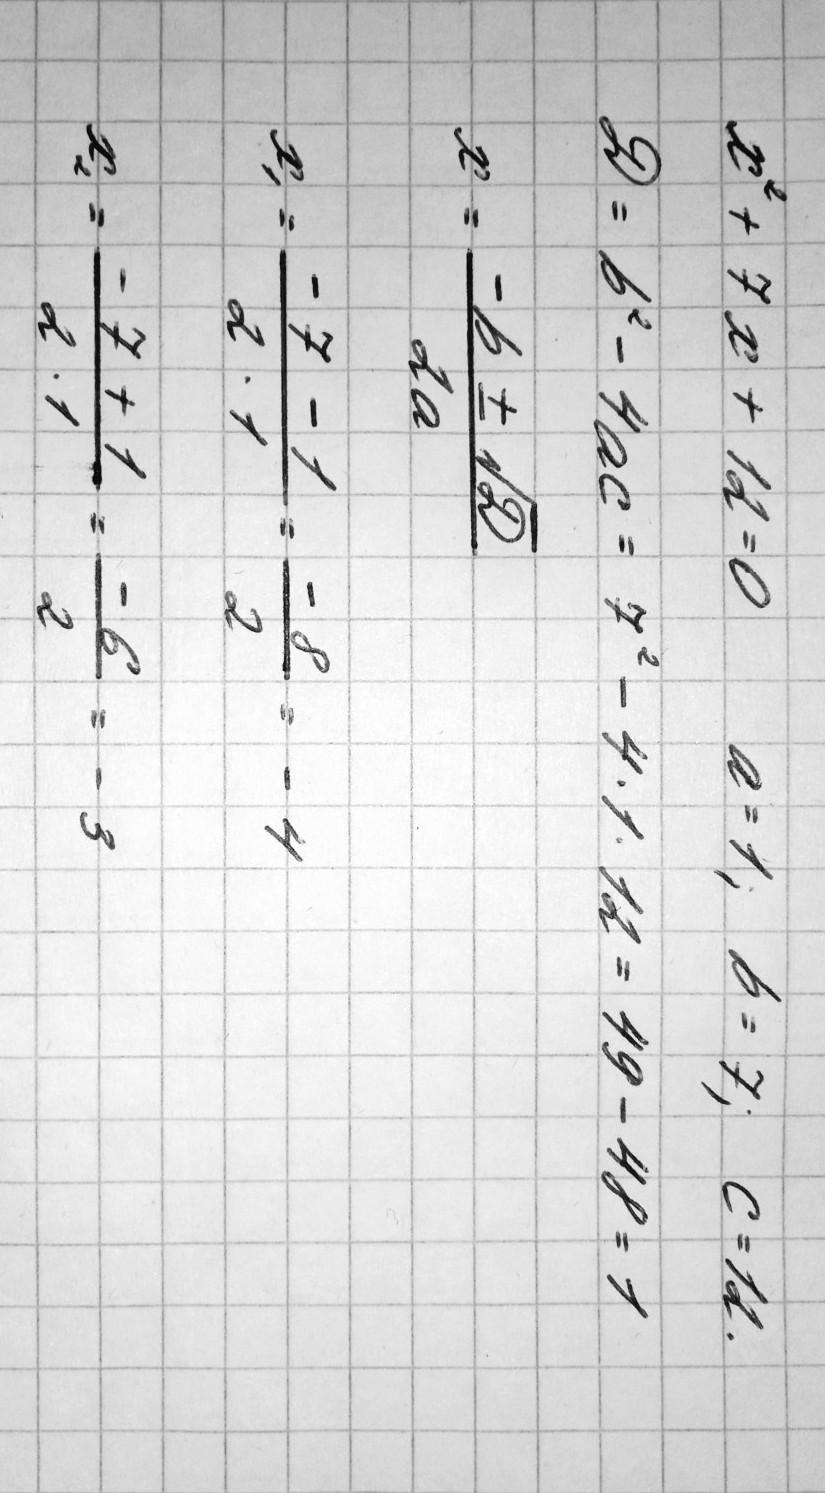 x² + 7x + 12 = 0 a = 1; b = 7; c = 12.
D = b² - 4ac = 7² - 4 · 1 · 12 = 49 - 48 = 1
x = (-b ± √D) / 2a
x₁ = (-7 - 1) / (2 · 1) = -8 / 2 = -4
x₂ = (-7 + 1) / (2 · 1) = -6 / 2 = -3